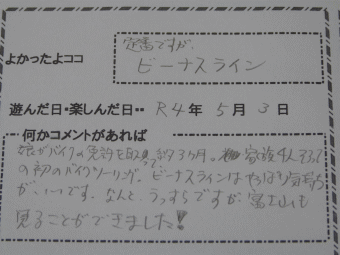 定番ですが、
よかったよココ
ビーナスライン
遊んだ日・楽しんだ日・・ R4年 5月 3日
何かコメントがあれば
娘がバイクの免許を取って約3ヶ月。家族4人そろって
の初のバイクツーリング。ビーナスラインはやっぱり気持ち
が、いいです。なんと、うっすらですが富士山も
見ることができました!